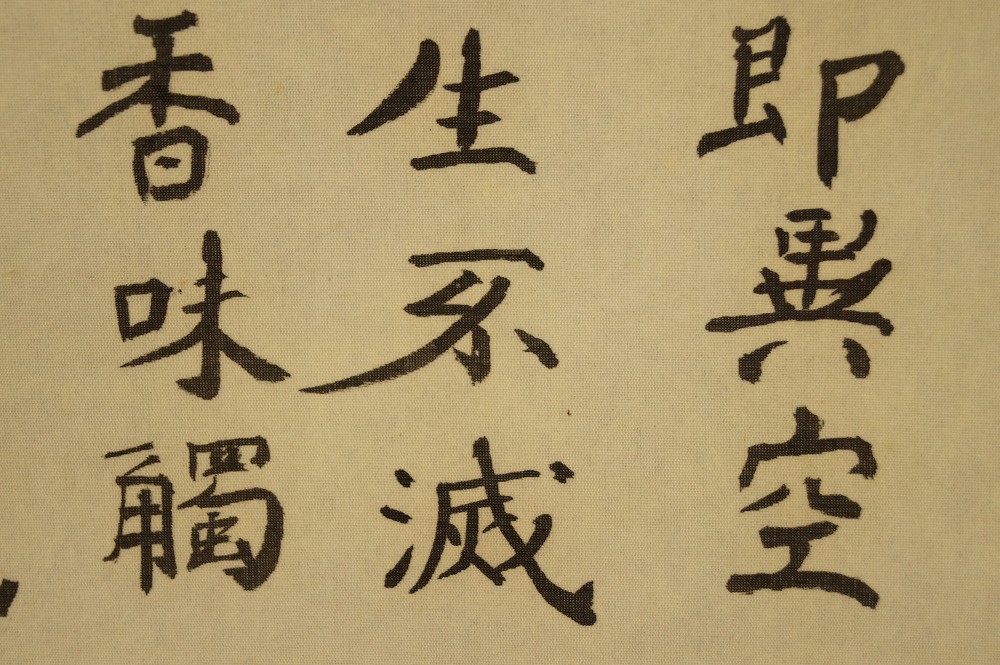 即異空
生不滅
香味觸